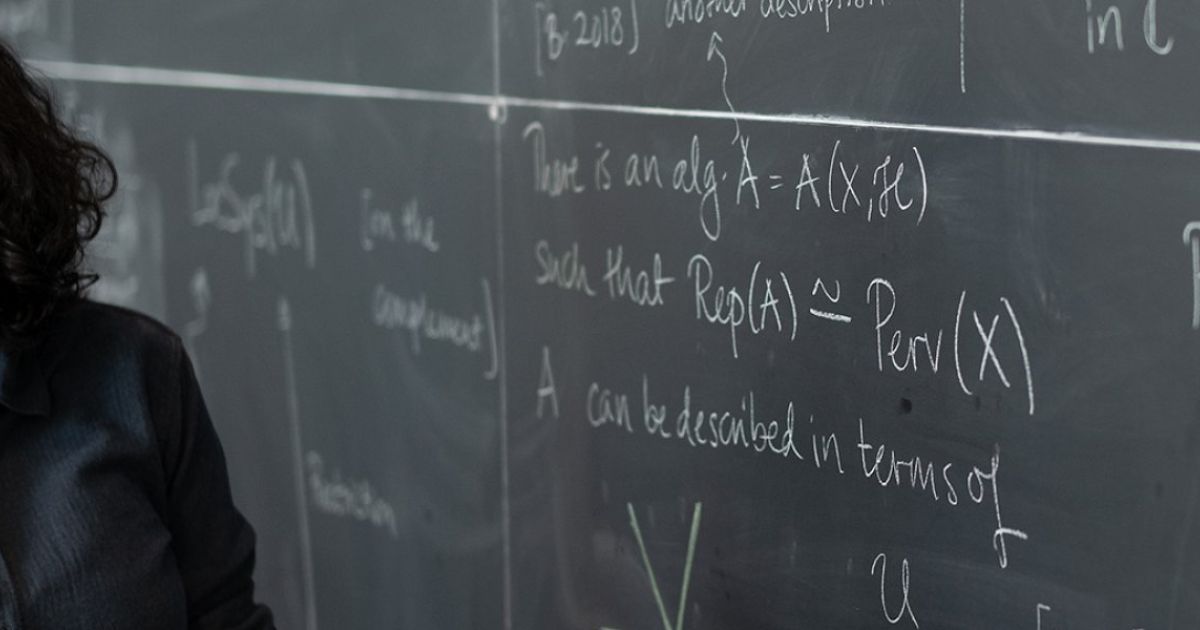 [B. 2018] another description
in C
There is an alg. A = A(X, ℋ)
such that Rep(A) ≃ Perv(X)
A can be described in terms of
U
LocSys(U)
[on the
complement]